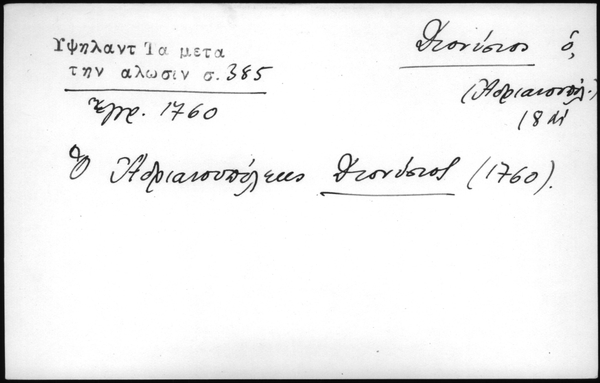 Υψηλαντ Τα μετα
την αλωσιν σ. 385
Έγγρ. 1760
Διονύσιος ὁ,
(Ἀδριανουπόλ.)
18 αἰ
Ὁ Ἀδριανουπόλεως Διονύσιος (1760).